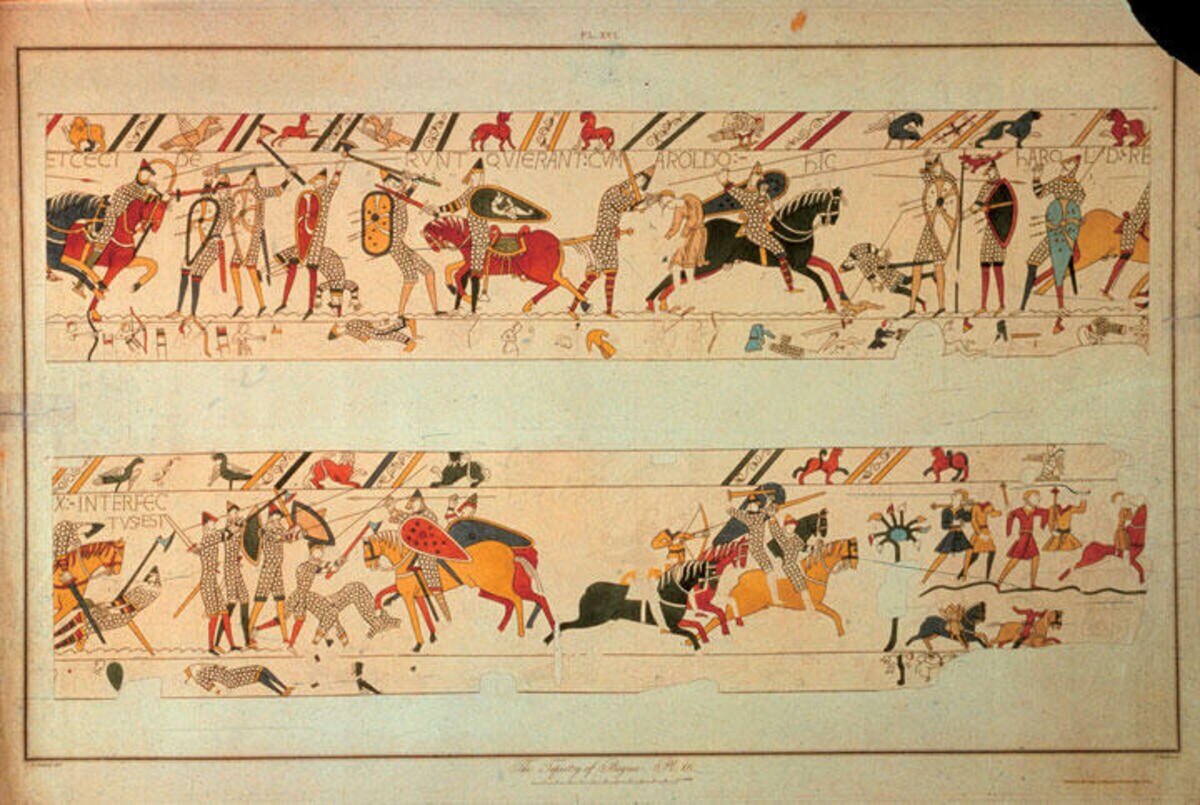 PL. XVI.
ET CECI DE RVNT QVIERANT: CVM AROLDO:- hIC hARO LD:- RE
X:- INTERFEC
TVS:EST
The Tapestry of Bayeux. Pl. 16.